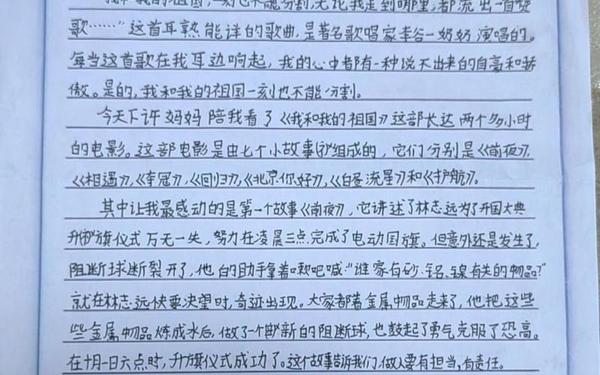 我和我的祖国,一刻也不能分割,无论我走到哪里,都流出一首赞
歌……"这首耳熟能详的歌曲,是著名歌唱家李谷一奶奶演唱的。
每当这首歌在我耳边响起,我的心中都有一种说不出来的自豪和骄
傲。是的,我和我的祖国一刻也不能分割。
今天下许妈妈陪我看了《我和我的祖国》这部长达两个多小时
的电影。这部电影是由七个小故事组成的,它们分别是《前夜》、
《相遇》、《夺冠》、《回归》、《北京你好》、《白昼流星》和《护航》。
其中让我最感动的是第一个故事《前夜》,它讲述了林志远为了开国大典
升旗仪式万无一失,努力在凌晨三点完成了电动国旗。但意外还是发生了,
阻断球断裂开了,他的助手拿着喇叭喊:"谁家有砂、铬、镍有关的物品?"
就在林志远快要决望时,奇迹出现。大家都著金属物品走来了,他把这些
些金属物品炼成水后,做了一个崭新的阻断球,也鼓起了勇气克服了恐高。
在十月一日六点时,升旗仪式成功了。这个故事告诉我们,做人要有担当,有责任。